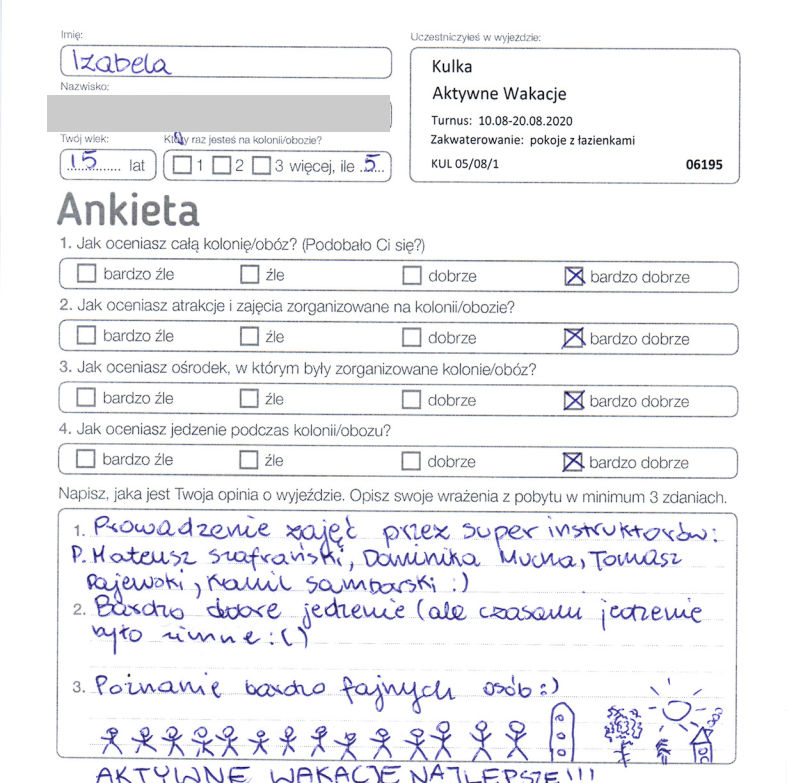 Imię:
Izabela
Nazwisko:
Twój wiek:
15 lat
Który raz jesteś na kolonii/obozie?
1 2 3 więcej, ile 5
Uczestniczyłeś w wyjeździe:
Kulka
Aktywne Wakacje
Turnus: 10.08-20.08.2020
Zakwaterowanie: pokoje z łazienkami
KUL 05/08/1 06195
Ankieta
1. Jak oceniasz całą kolonię/obóz? (Podobało Ci się?)
bardzo źle źle dobrze bardzo dobrze
2. Jak oceniasz atrakcje i zajęcia zorganizowane na kolonii/obozie?
bardzo źle źle dobrze bardzo dobrze
3. Jak oceniasz ośrodek, w którym były zorganizowane kolonie/obóz?
bardzo źle źle dobrze bardzo dobrze
4. Jak oceniasz jedzenie podczas kolonii/obozu?
bardzo źle źle dobrze bardzo dobrze
Napisz, jaka jest Twoja opinia o wyjeździe. Opisz swoje wrażenia z pobytu w minimum 3 zdaniach.
1. Prowadzenie zajęć przez super instruktorów:
P. Mateusz Szafrański, Dominika Mucha, Tomasz
Rajewski, Kamil Samborski :)
2. Bardzo dobre jedzenie (ale czasami jedzenie
było zimne :( )
3. Poznanie bardzo fajnych osób :)
AKTYWNE WAKACJE NAJLEPSZE!!!